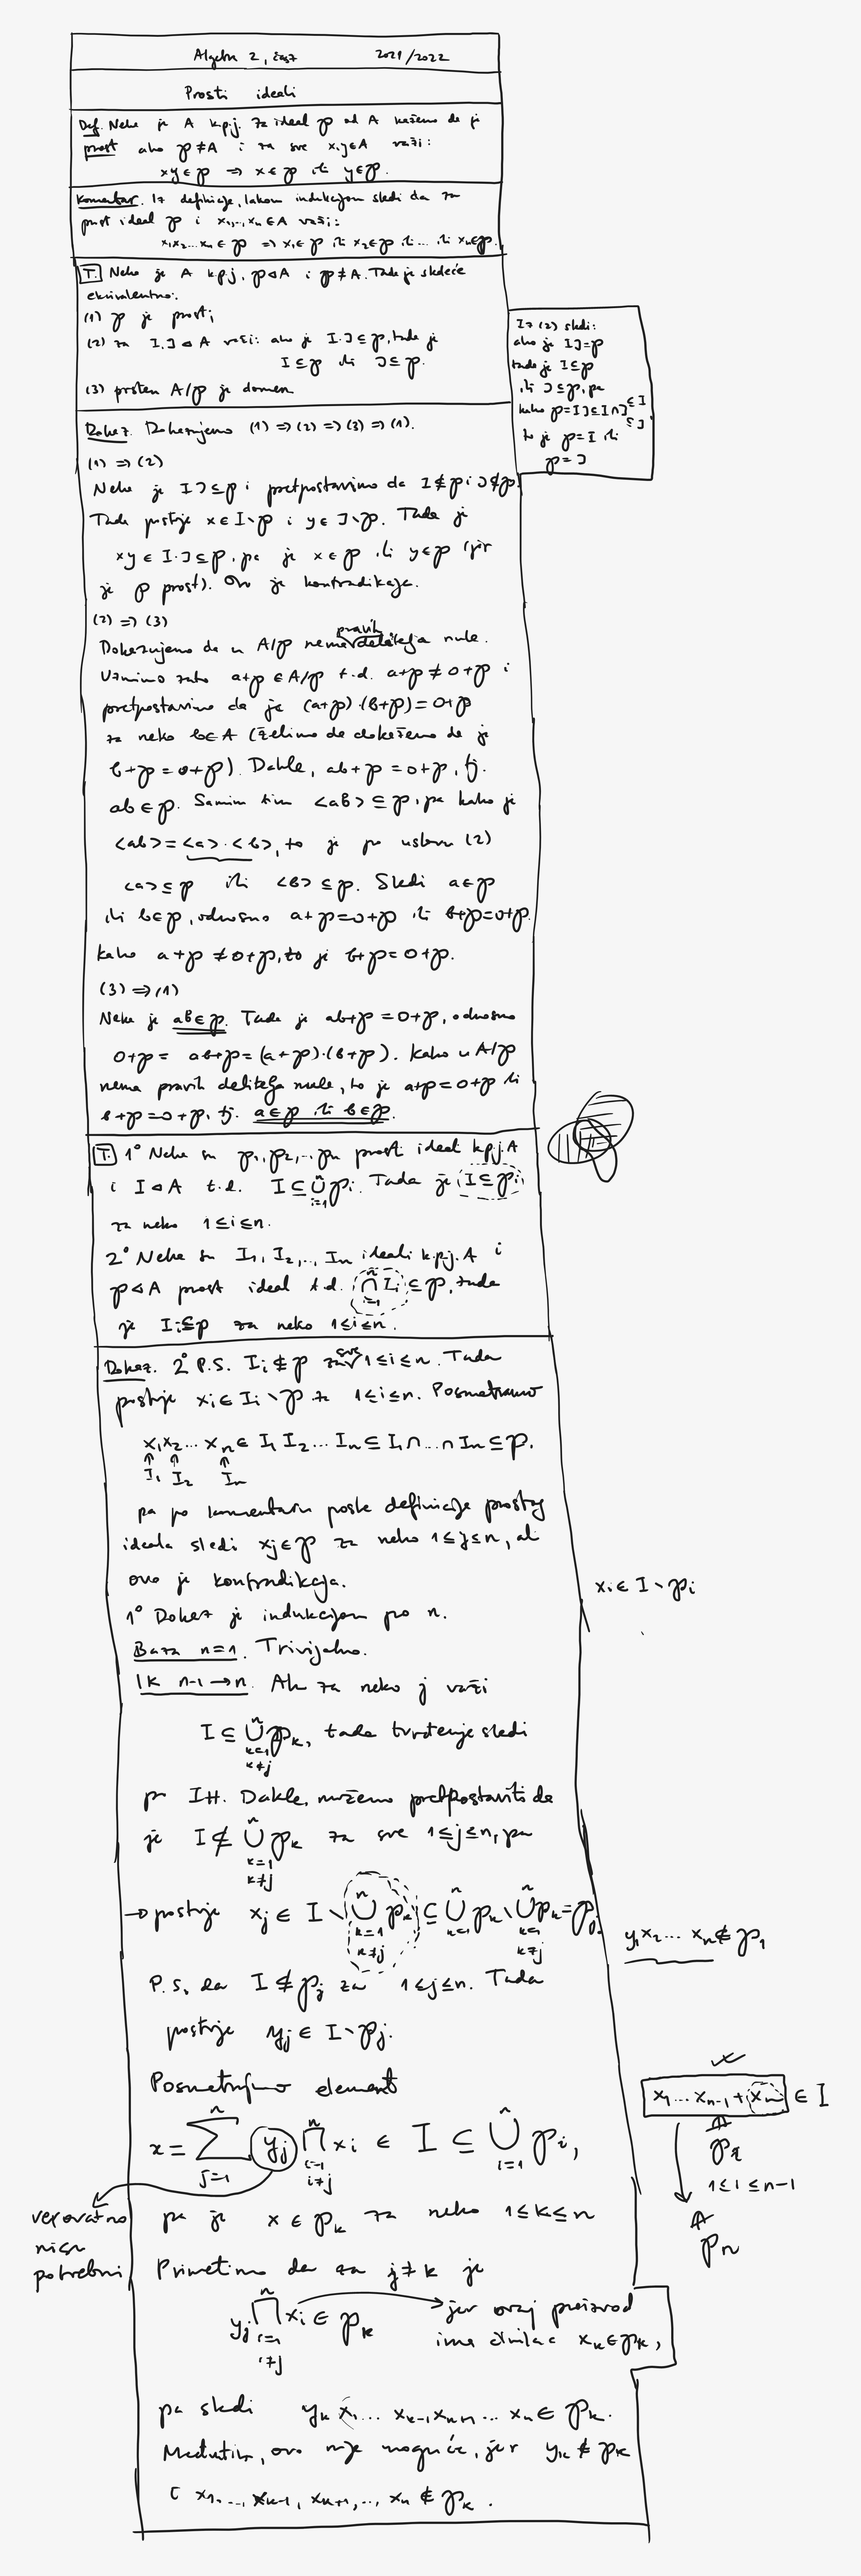 Algebra 2, čas 7 2021/2022
Prosti ideali
Def. Neka je A k.p.j. Za ideal p od A kažemo da je
prost ako p ≠ A i za sve x,y ∈ A važi:
xy ∈ p ⇒ x ∈ p ili y ∈ p.
Komentar. Iz definicije, lakom indukcijom sledi da za
prost ideal p i x₁,...,xₙ ∈ A važi:
x₁x₂...xₙ ∈ p ⇒ x₁ ∈ p ili x₂ ∈ p ili ... ili xₙ ∈ p.
T. Neka je A k.p.j, p ⊲ A i p ≠ A. Tada je sledeće
ekvivalentno:
(1) p je prost;
(2) za I, J ⊲ A važi: ako je I·J ⊆ p, tada je
I ⊆ p ili J ⊆ p.
(3) prsten A/p je domen.
Iz (2) sledi:
ako je IJ = p
tada je I ⊆ p
ili J ⊆ p, pa
kako p = IJ ⊆ I∩J ⊆ I ⊆ J
to je p = I ili
p = J
Dokaz. Dokazujemo (1) ⇒ (2) ⇒ (3) ⇒ (1).
(1) ⇒ (2)
Neka je IJ ⊆ p i pretpostavimo da I ⊈ p i J ⊈ p.
Tada postoje x ∈ I∖p i y ∈ J∖p. Tada je
xy ∈ I·J ⊆ p, pa je x ∈ p ili y ∈ p (jer
je p prost). Ovo je kontradikcija.
(2) ⇒ (3)
Dokazujemo da u A/p nema pravih delitelja nule.
Uzmimo zato a+p ∈ A/p t.d. a+p ≠ 0+p i
pretpostavimo da je (a+p)·(b+p) = 0+p
za neko b ∈ A (želimo da dokažemo da je
b+p = 0+p). Dakle, ab+p = 0+p, tj.
ab ∈ p. Samim tim <ab> ⊆ p, pa kako je
<ab> = <a>·<b>, to je po uslovu (2)
<a> ⊆ p ili <b> ⊆ p. Sledi a ∈ p
ili b ∈ p, odnosno a+p = 0+p ili b+p = 0+p.
Kako a+p ≠ 0+p, to je b+p = 0+p.
(3) ⇒ (1)
Neka je ab ∈ p. Tada je ab+p = 0+p, odnosno
0+p = ab+p = (a+p)·(b+p). Kako u A/p
nema pravih delitelja nule, to je a+p = 0+p ili
b+p = 0+p, tj. a ∈ p ili b ∈ p.
T. 1° Neka su p₁, p₂, ... pₙ prosti ideali k.p.j. A
i I ⊲ A t.d. I ⊆ ⋃ⁿᵢ₌₁ pᵢ. Tada je I ⊆ pᵢ
za neko 1 ≤ i ≤ n.
2° Neka su I₁, I₂, ..., Iₙ ideali k.p.j. A i
p ⊲ A prost ideal t.d. ⋂ⁿᵢ₌₁ Iᵢ ⊆ p, tada
je Iᵢ ⊆ p za neko 1 ≤ i ≤ n.
Dokaz. 2° P.S. Iᵢ ⊈ p za sve 1 ≤ i ≤ n. Tada
postoje xᵢ ∈ Iᵢ∖p za 1 ≤ i ≤ n. Posmatramo
x₁x₂...xₙ ∈ I₁I₂...Iₙ ⊆ I₁∩...∩Iₙ ⊆ p.
↑ ↑ ↑
I₁ I₂ Iₙ
pa po komentaru posle definicije prostog
ideala sledi xⱼ ∈ p za neko 1 ≤ j ≤ n, ali
ovo je kontradikcija.
xᵢ ∈ I∖pᵢ
1° Dokaz je indukcijom po n.
Baza n=1. Trivijalno.
IK n-1 → n. Ako za neko j važi
I ⊆ ⋃ⁿ pₖ, tada tvrđenje sledi
k=1
k≠j
po IH. Dakle, možemo pretpostaviti da
je I ⊈ ⋃ⁿ pₖ za sve 1 ≤ j ≤ n, pa
k=1
k≠j
→ postoje xⱼ ∈ I∖⋃ⁿ pₖ ⊆ ⋃ⁿ pₖ∖⋃ⁿ pₖ = pⱼ.
k=1 k=1 k=1
k≠j k≠j
y₁x₂...xₙ ∉ p₁
P.S. da I ⊈ pⱼ za 1 ≤ j ≤ n. Tada
postoje yⱼ ∈ I∖pⱼ.
Posmatrajmo element
x = ∑ⁿⱼ₌₁ yⱼ ∏ⁿ xᵢ ∈ I ⊆ ⋃ⁿᵢ₌₁ pᵢ,
i=1
i≠j
x₁...xₙ₋₁ + xₙ ∈ I
pᵢ
1 ≤ i ≤ n-1
pₙ
verovatno
nisu
potrebni
pa je x ∈ pₖ za neko 1 ≤ k ≤ n
Primetimo da za j ≠ k je
yⱼ ∏ⁿ xᵢ ∈ pₖ → jer ovaj proizvod
i=1
i≠j
ima činilac xₖ ∈ pₖ,
pa sledi yₖ x₁...xₖ₋₁xₖ₊₁...xₙ ∈ pₖ.
Međutim, ovo nije moguće, jer yₖ ∉ pₖ
i x₁,...,xₖ₋₁, xₖ₊₁,..., xₙ ∉ pₖ.